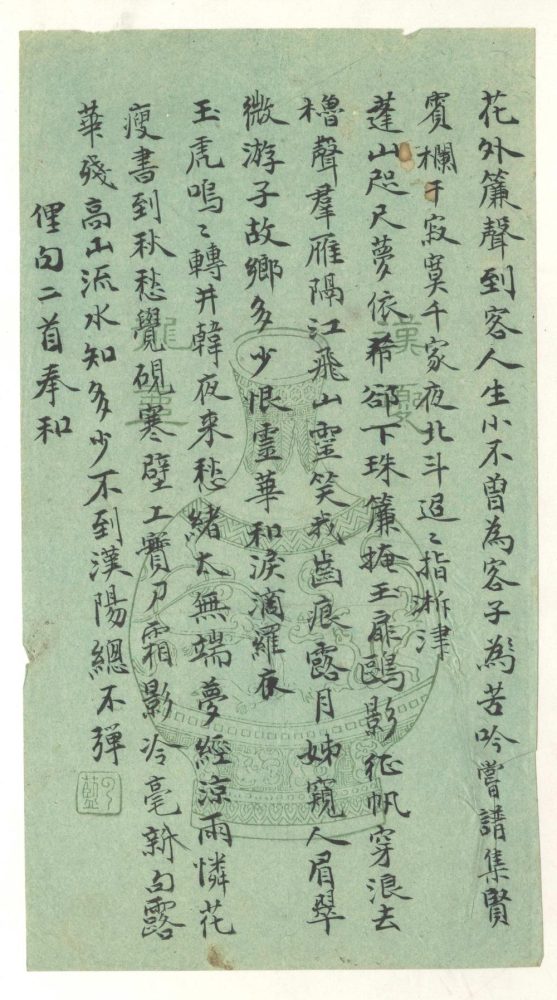 花外簾聲到客人生小不曾為客子為苦吟嘗譜集賢
賓欄干寂寞千家夜北斗迢〻指淅津
蓬山咫尺夢依希郤下珠簾掩玉扉鷗影征帆穿浪去
櫓聲羣雁隔江飛山靈笑我齒痕露月姊窺人眉翠
微游子故鄉多少恨靈華和淚滴羅衣
玉虎嗚〻轉井韓夜来愁緒太無端夢經涼雨憐花
瘦書到秋愁覺硯寒壁工寶刀霜影冷毫新句露
華殘高山流水知多少不到漢陽總不彈
俚句二首奉和
漢
龍